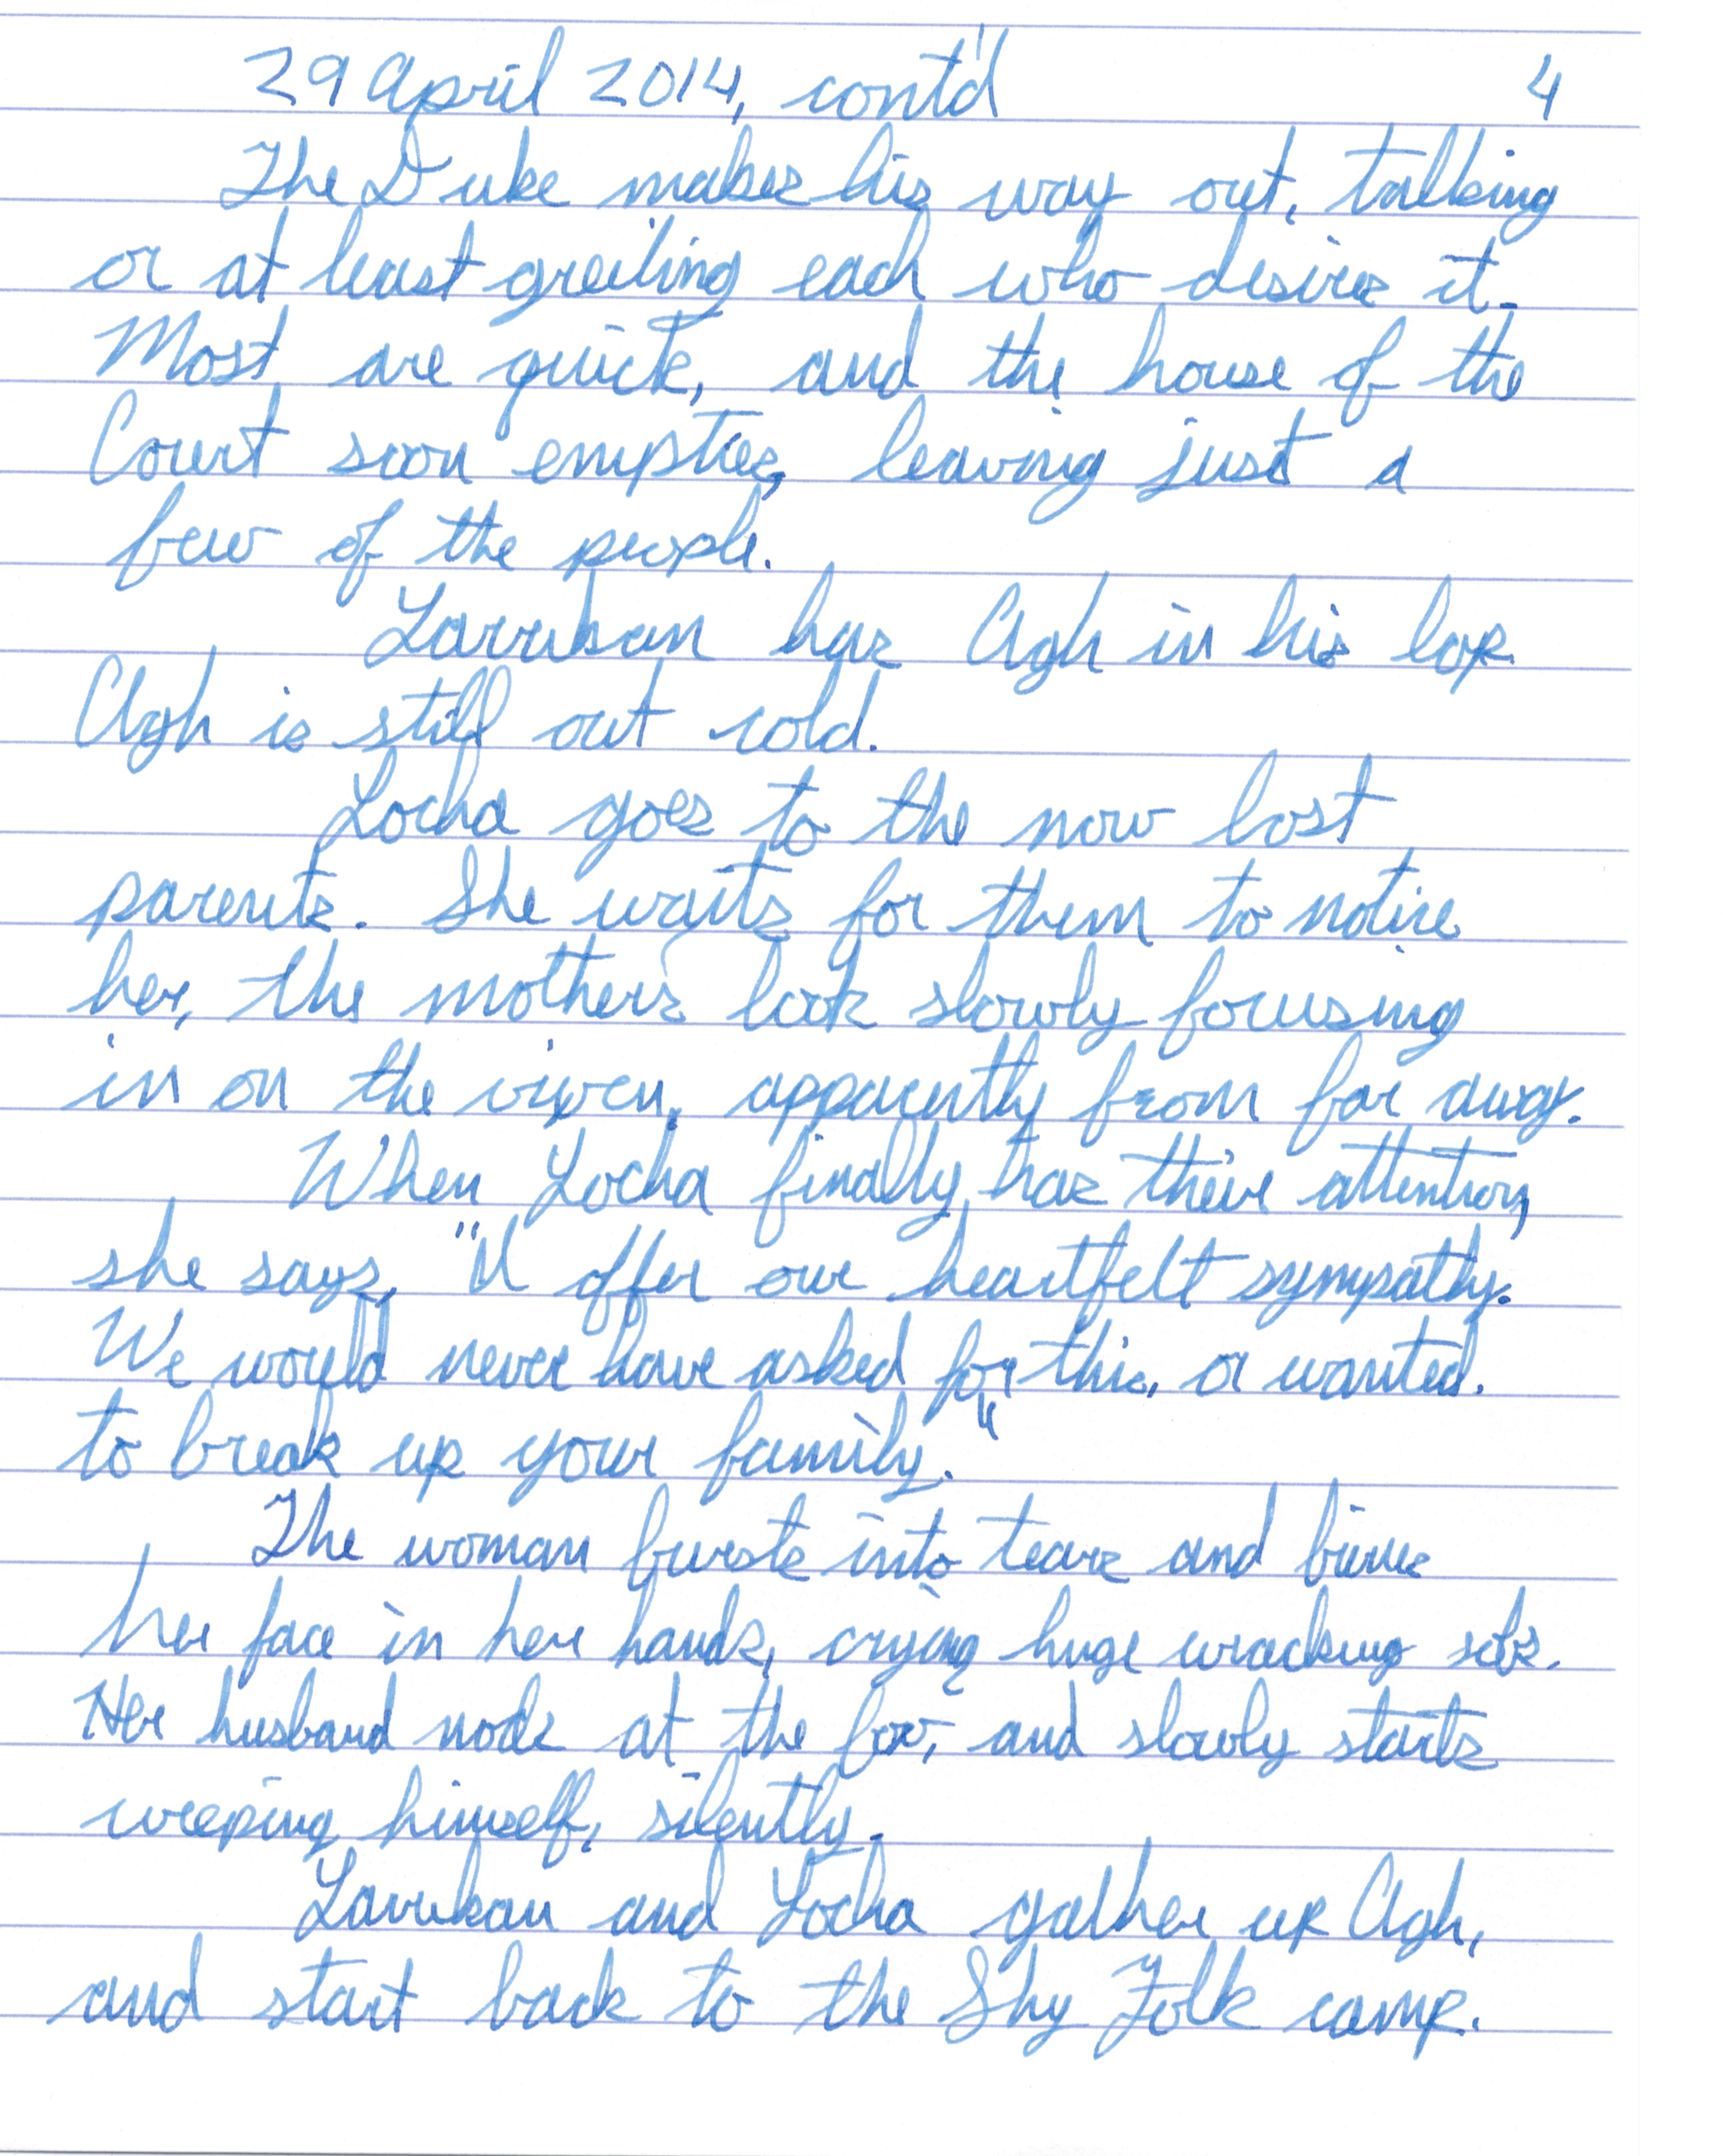 29 April 2014, cont'd 4
The Duke makes his way out, talking
or at least greeting each who desires it.
Most are quick, and the house of the
Court soon empties, leaving just a
few of the people.
Larrikan has Agh in his lap.
Agh is still out cold.
Locha goes to the now lost
parents. She waits for them to notice
her, the mother's look slowly focusing
in on the vixen, apparently from far away.
When Locha finally has their attention,
she says, "I offer our heartfelt sympathy.
We would never have asked for this, or wanted
to break up your family."
The woman bursts into tears and buries
her face in her hands, crying huge wracking sobs.
Her husband nods at the fox, and slowly starts
weeping himself, silently.
Larrikan and Locha gather up Agh,
and start back to the Shy Folk camp.